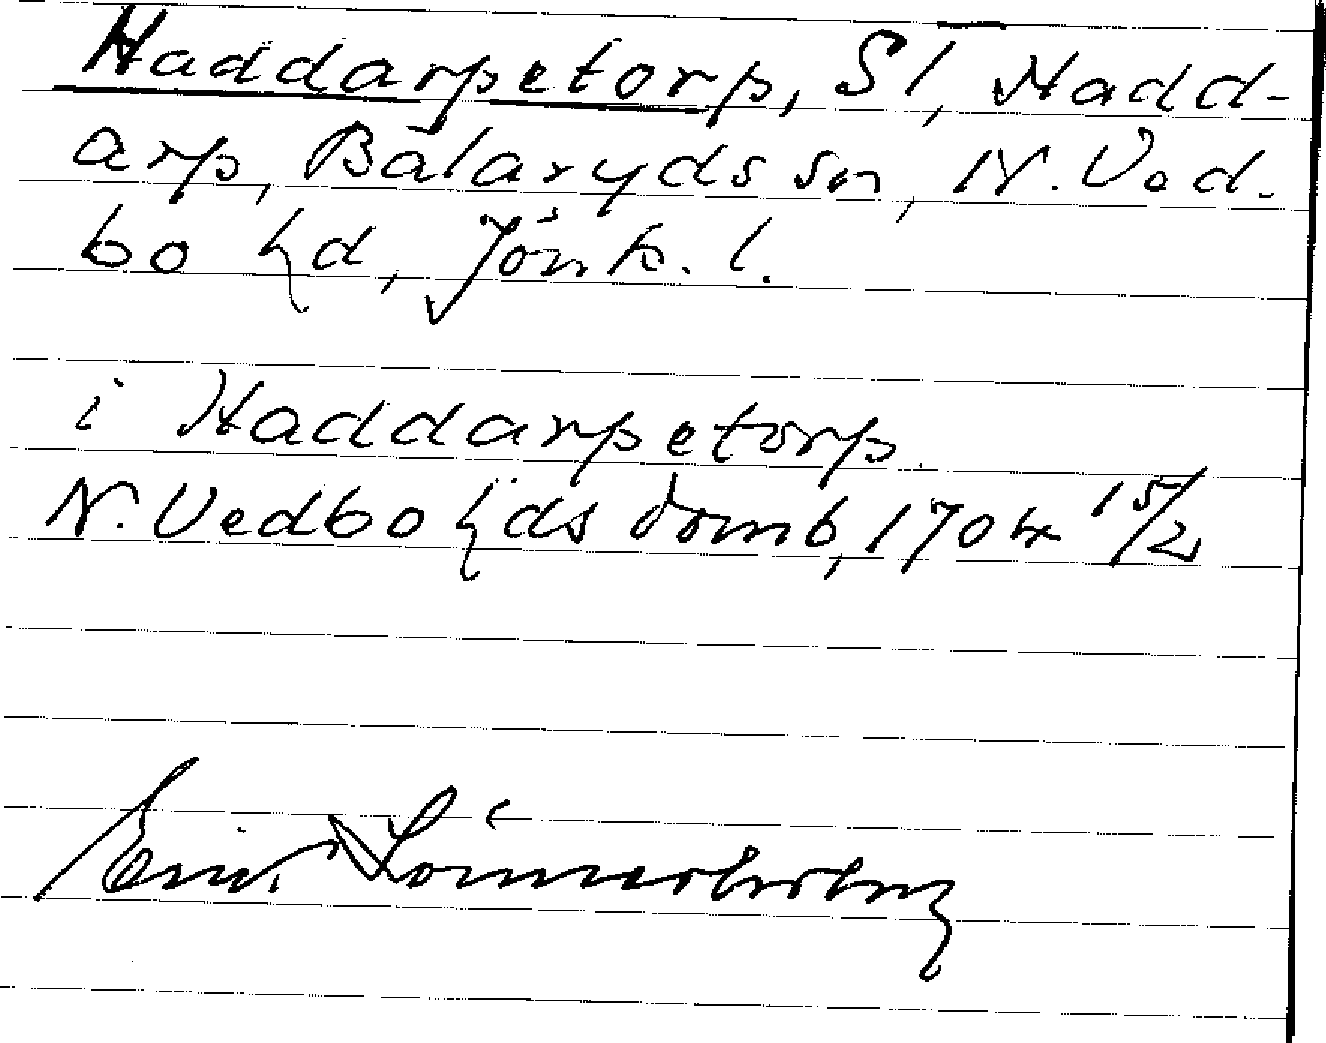 Haddarpetorp, Sl, Hadd-
arp, Bälaryds sn, N. Ved-
bo hd, Jönk. l.
i Haddarpetorp
N. Vedbo hds domb, 1704 15/2